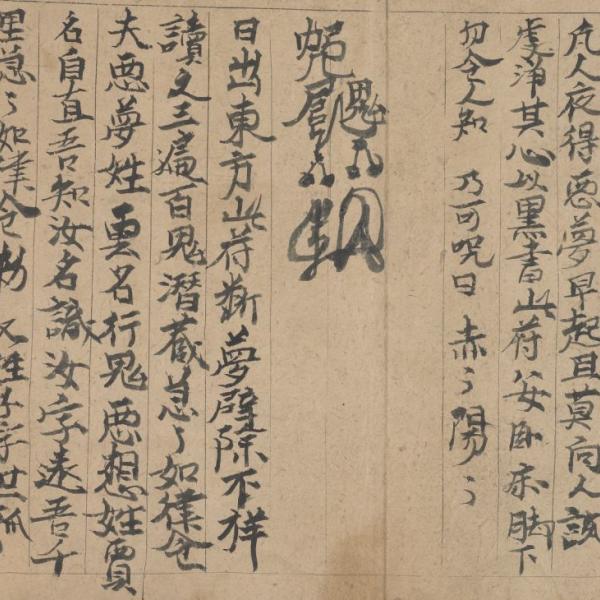 凡人夜得惡夢早起且莫向人說
虔淨其心以黑書此符安卧床脚下
勿令人知 乃可咒曰 赤々陽々
日出東方此符斷夢辟除不祥
讀之三遍百鬼潛藏急々如律令
夫惡夢姓雲名行鬼惡想姓賈
名自直吾知汝名識汝字遠吾千
里急々如律令敕 又姓子字世